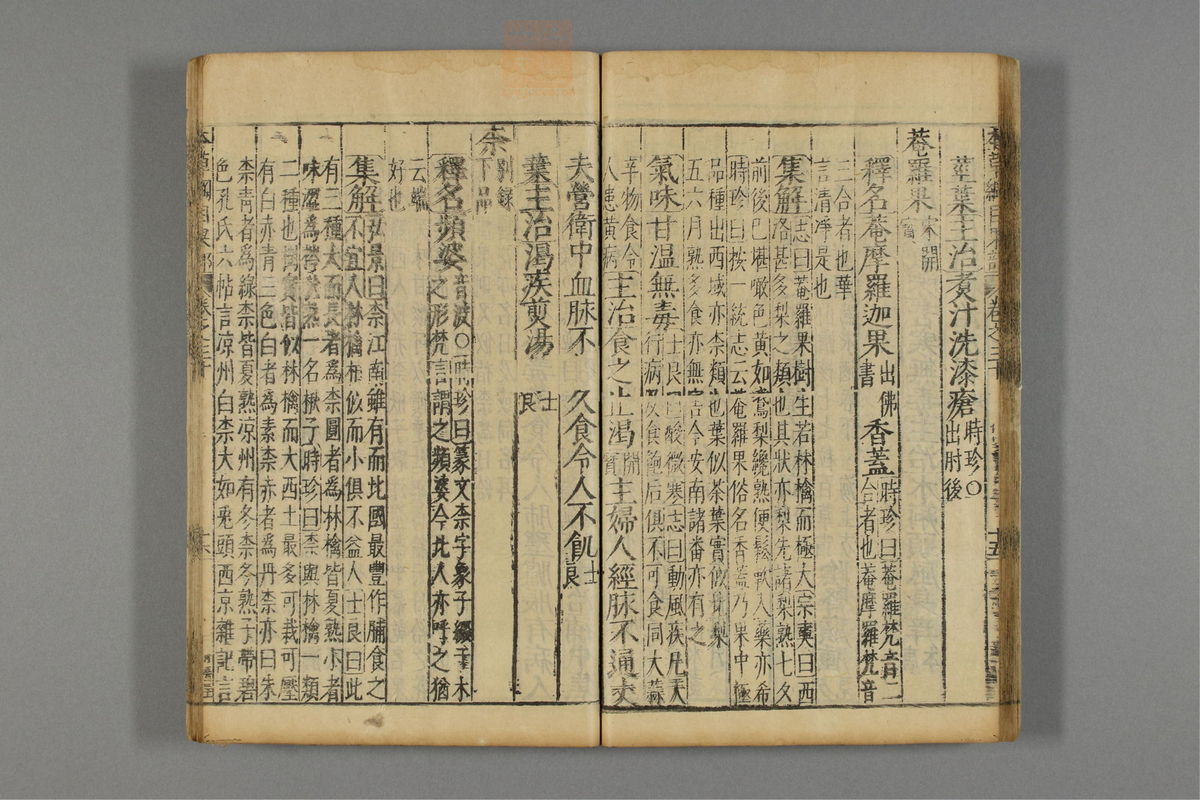 本草綱目果部 卷之三十 十五
莖葉主治煮汁洗漆瘡時珍○
出肘後
菴羅果宋開
寶
釋名菴摩羅迦果出佛書 香蓋時珍曰菴羅梵音二
合者也菴摩羅梵音
三合者也華
言清凈是也
集解志曰菴羅果樹生若林檎而極大宗奭曰西
洛甚多梨之類也其狀亦梨先諸梨熟七夕
前後已堪噉色黃如鵞梨纔熟便鬆軟入藥亦希
時珍曰按一統志云菴羅果俗名香蓋乃果中極
品種出西域亦柰類也葉似茶葉實似北梨
五六月熟多食亦無害今安南諸番亦有之
氣味甘温無毒士良曰酸微寒志曰動風疾凡天
行病及食飽后俱不可食同大蒜
辛物食令
人患黃病
主治食之止渴開寶主婦人經脉不通丈
夫營衛中血脉不 久食令人不飢士良
葉主治渴疾煎湯 士良
柰別錄
下品
釋名頻婆音波○時珍曰篆文柰字象子綴于木
之形梵言謂之頻婆今北人亦呼之猶
云端
好也
集解弘景曰柰江南雖有而北國最豐作脯食之
不宜人林檎相似而小俱不益人士良曰此
有三種大而長者爲柰圓者爲林檎皆夏熟小者
味澀爲梣秋熟一名楸子時珍曰柰與林檎一類
二種也樹實皆似林檎而大西土最多可栽可壓
有白赤青三色白者爲素柰赤者爲丹柰亦曰朱
柰青者爲綠柰皆夏熟凉州有冬柰冬熟子帶碧
色孔氏六帖言凉州白柰大如兎頭西京雜記言
本草綱目果部 卷之三十 十六